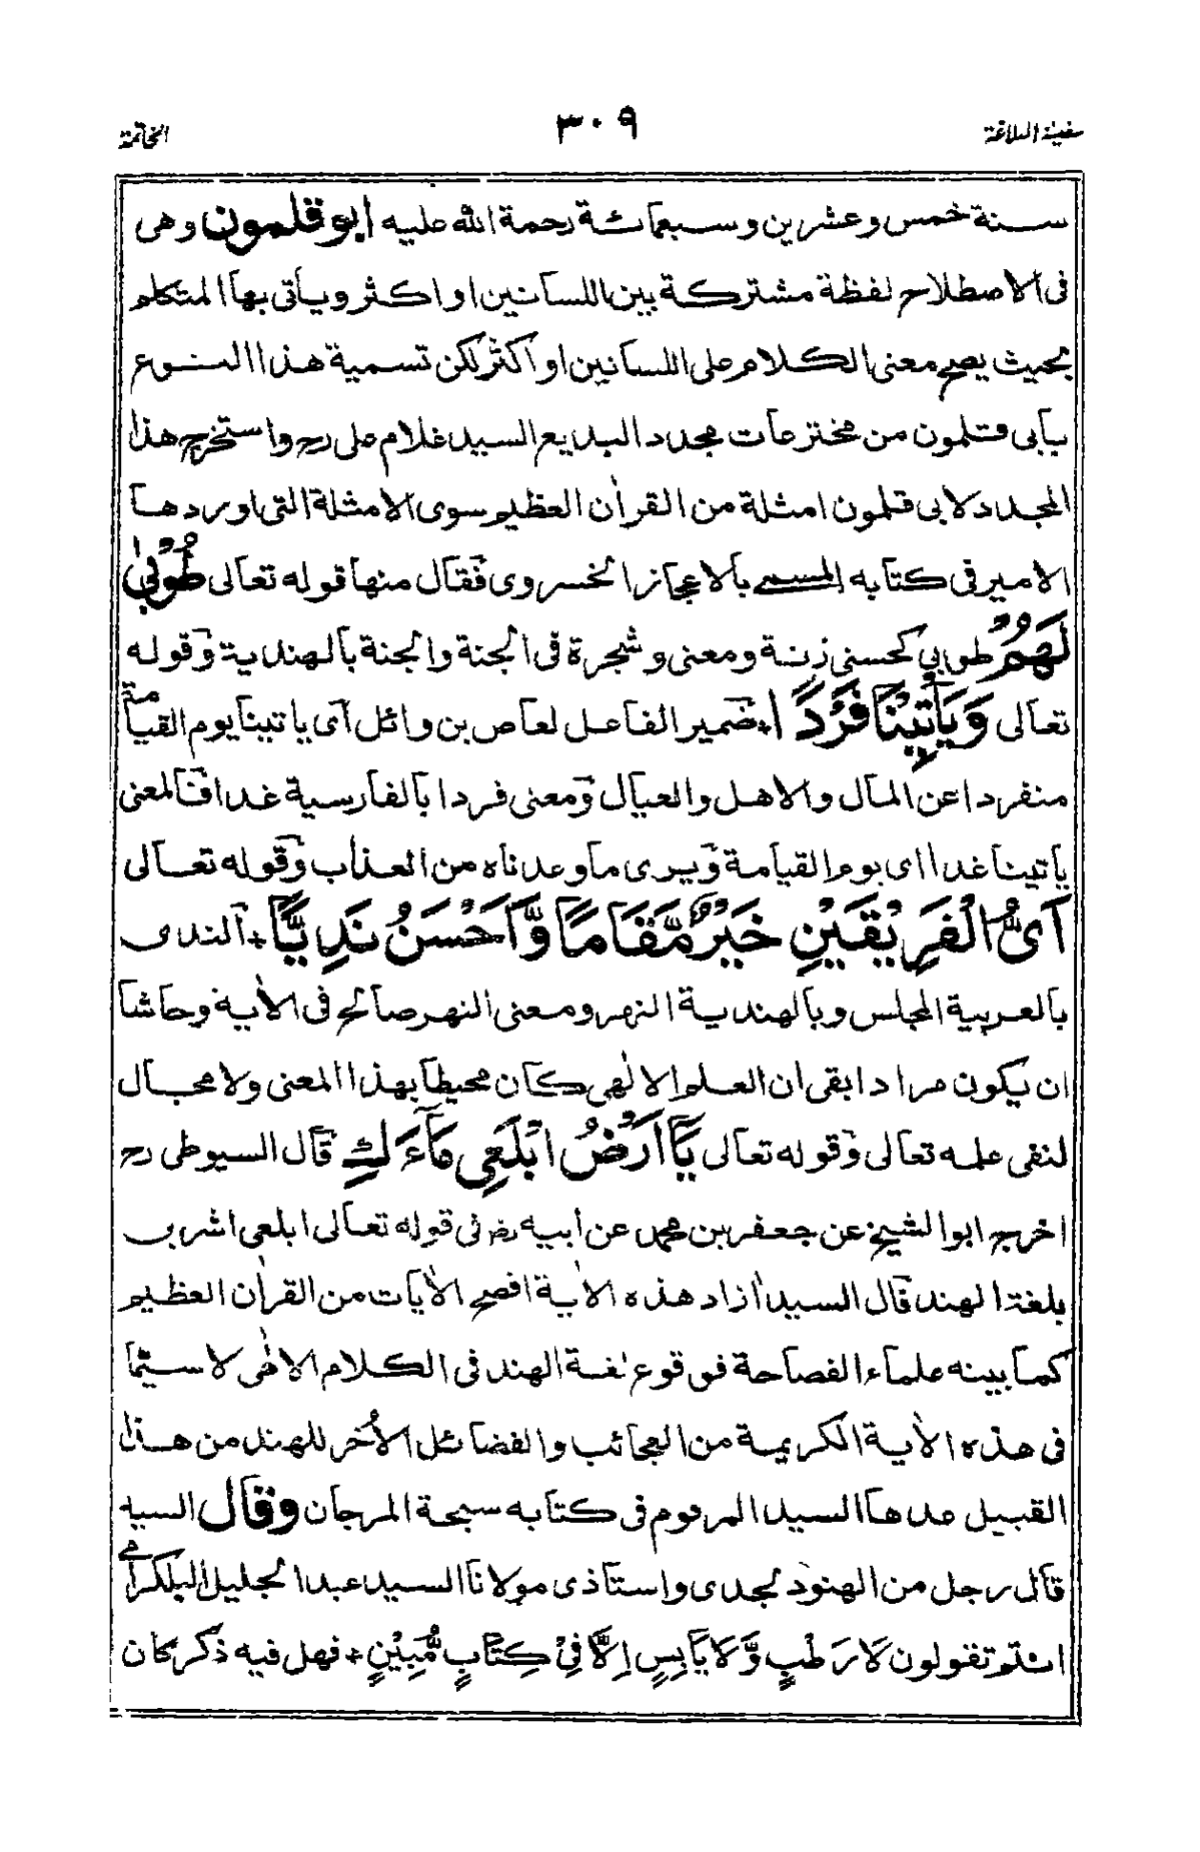 سفينة البلاغة
٣٠٩
الخاتمة
سنة خمس وعشرين وسبعمائة رحمة الله عليه ابو قلمون وهى
فى الاصطلاح لفظة مشتركة بين اللسانين او اكثر وياتى بها المتكلم
بحيث يصح معنى الكلام على اللسانين او اكثر لكن تسمية هذا النوع
بابى قلمون من مخترعات مجدد البديع السيد غلام على رح واستخرج هذا
المجدد لابى قلمون امثلة من القراٰن العظيم سوى الامثلة التى اوردها
الامير فى كتابه المسمى بالاعجاز الخسروى فقال منها قوله تعالى طُوْبىٰ
لَهُمْ طوبى كحسنى زنة ومعنى وشجرة فى الجنة والجنة بالهندية وقوله
تعالى وَيَأْتِيْنَا فَرْدًا + ضمير الفاعل لعاص بن وائل اى ياتينا يوم القيامة
منفردا عن المال والاهل والعيال ومعنى فردا بالفارسية غدا فالمعنى
ياتينا غدا اى يوم القيامة ويرى ما وعدناه من العذاب وقوله تعالى
اَىُّ الْفَرِيْقَيْنِ خَيْرٌ مَّقَامًا وَّاَحْسَنُ نَدِيًّا + الندى
بالعربية المجلس وبالهندية النهر ومعنى النهر صالح فى الاٰية وحاشا
ان يكون مرادا بقى ان العلم الالٰهى كان محيطا بهذا المعنى ولا مجال
لنفى علمه تعالى وقوله تعالى يَآ اَرْضُ ابْلَعِى مَآءَكِ قال السيوطى رح
اخرج ابو الشيخ عن جعفر بن محمد عن ابيه رض فى قوله تعالى ابلعى اشربى
بلغة الهند قال السيد اٰزاد هذه الاٰية افصح الاٰيات من القراٰن العظيم
كما بينه علماء الفصاحة فوقوع لغة الهند فى الكلام الالٰهى لا سيّما
فى هذه الاٰية الكريمة من العجائب والفضائل الاُخر للهند من هذا
القبيل عدها السيد المرحوم فى كتابه سبحة المرجان وقال السيد
قال رجل من الهنود لجدى واستاذى مولانا السيد عبد الجليل البلكرامى
انتم تقولون لَا رَطْبٍ وَّلَا يَابِسٍ اِلَّا فِىْ كِتَابٍ مُّبِيْنٍ + فهل فيه ذكر كان